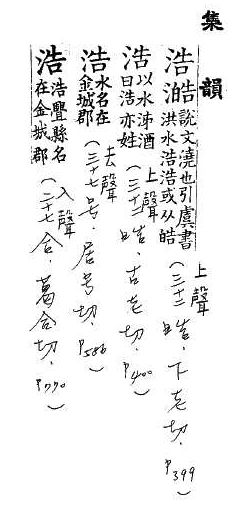 集韻
浩澔說文澆也引虞書洪水浩浩或从皓
上聲(三十二晧,下老切,P399)
浩以水沛酒曰浩亦姓
上聲(三十二晧,古老切,P400)
浩水名在金城郡
去聲(三十七号,居号切,P586)
浩浩亹縣名在金城郡
入聲(二十七合,葛合切,P770)